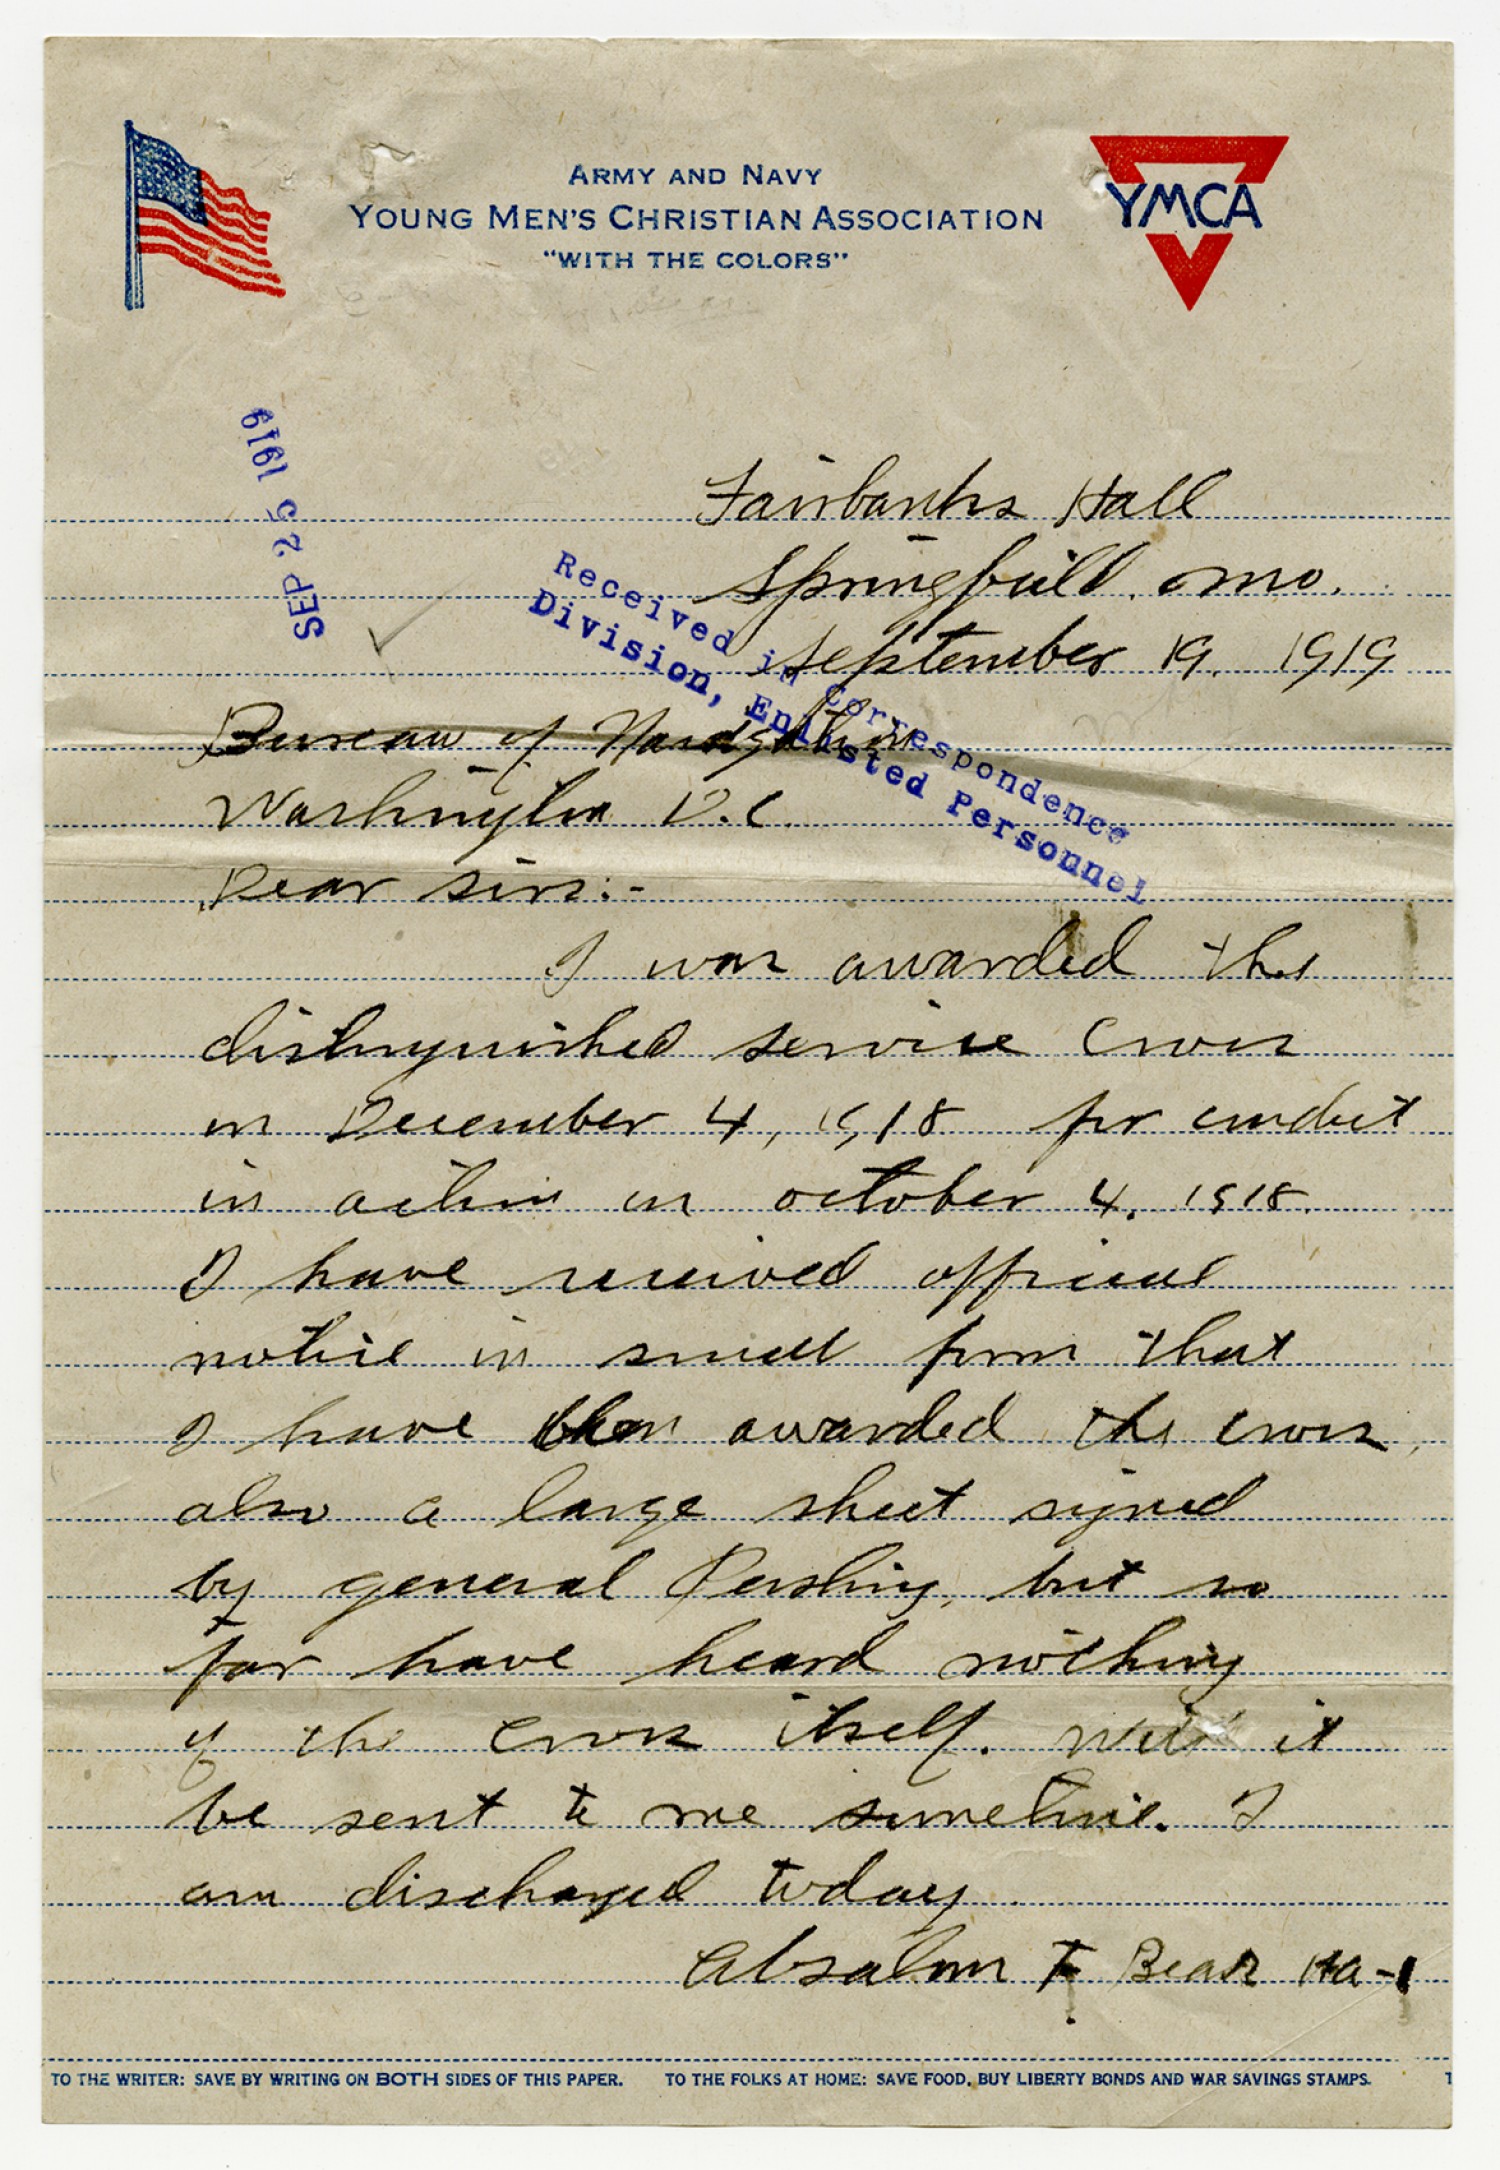 ARMY AND NAVY
YOUNG MEN'S CHRISTIAN ASSOCIATION
"WITH THE COLORS"
YMCA
SEP 25 1919
Received in Correspondence
Division, Enlisted Personnel
Fairbanks Hall
Springfield. Mo.
September 19, 1919
Bureau of Navigation
Washington D.C.
Dear sirs:-
I was awarded the
distinguished service Cross
on December 4, 1918 for conduct
in action on october 4. 1918.
I have received official
notice in small form that
I have been awarded the cross,
also a large sheet signed
by general Pershing, but so
far have heard nothing
of the cross itself. Will it
be sent to me sometime. I
am discharged today
Absalom F Bear HA-1
TO THE WRITER: SAVE BY WRITING ON BOTH SIDES OF THIS PAPER. TO THE FOLKS AT HOME: SAVE FOOD, BUY LIBERTY BONDS AND WAR SAVINGS STAMPS.